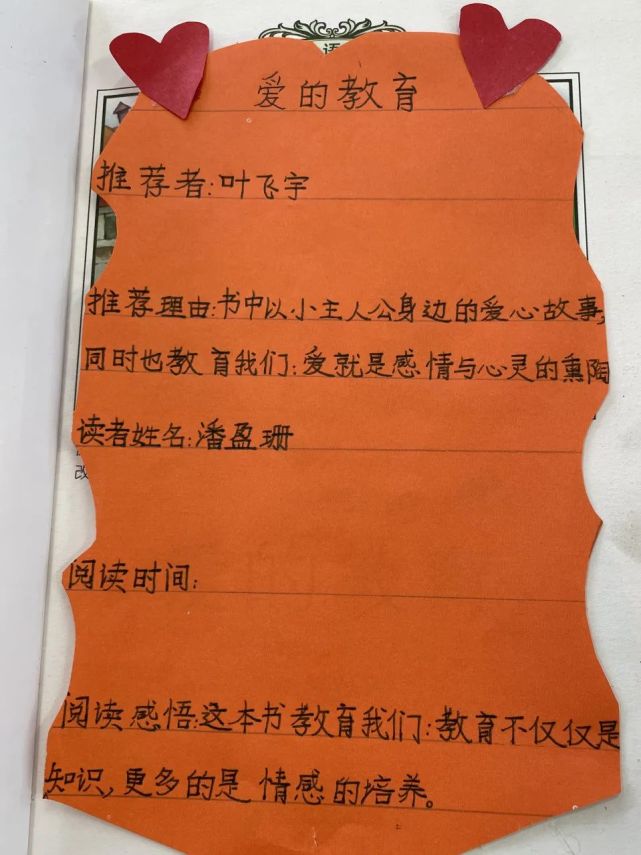 语
爱的教育
推荐者:叶飞宇
推荐理由:书中以小主人公身边的爱心故事,
同时也教育我们:爱就是感情与心灵的熏陶
读者姓名:潘盈珊
改
阅读时间:
阅读感悟:这本书教育我们:教育不仅仅是
知识,更多的是情感的培养。